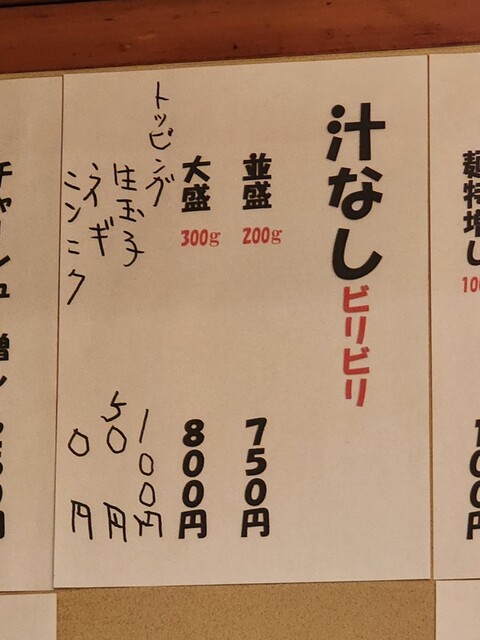 麺特増し
汁なしビリビリ
並盛 200g 750円
大盛 300g 800円
トッピング
生玉子 100円
ネギ 50円
ニンニク 0円